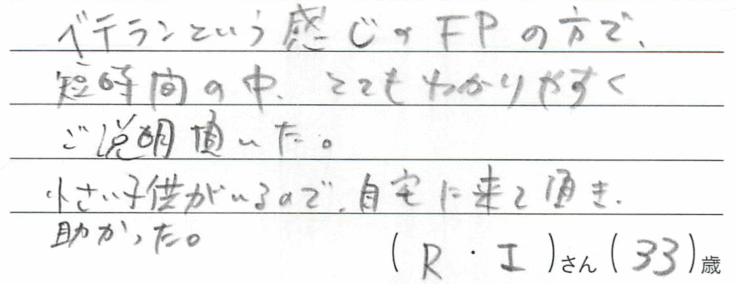 ベテランという感じのFPの方で、
短時間の中、とてもわかりやすく
ご説明頂いた。
小さい子供がいるので、自宅に来て頂き、
助かった。
(R・I)さん(33)歳